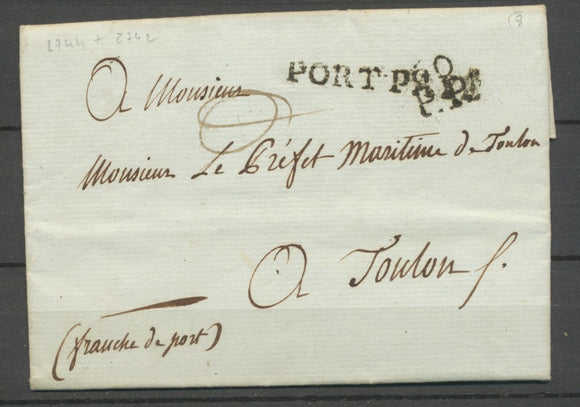 1744 + 2742
8
A Monsieur
PORT PAYÉ
P.P.
Monsieur Le Préfet Maritime de Toulon
A Toulon
(franche de port)